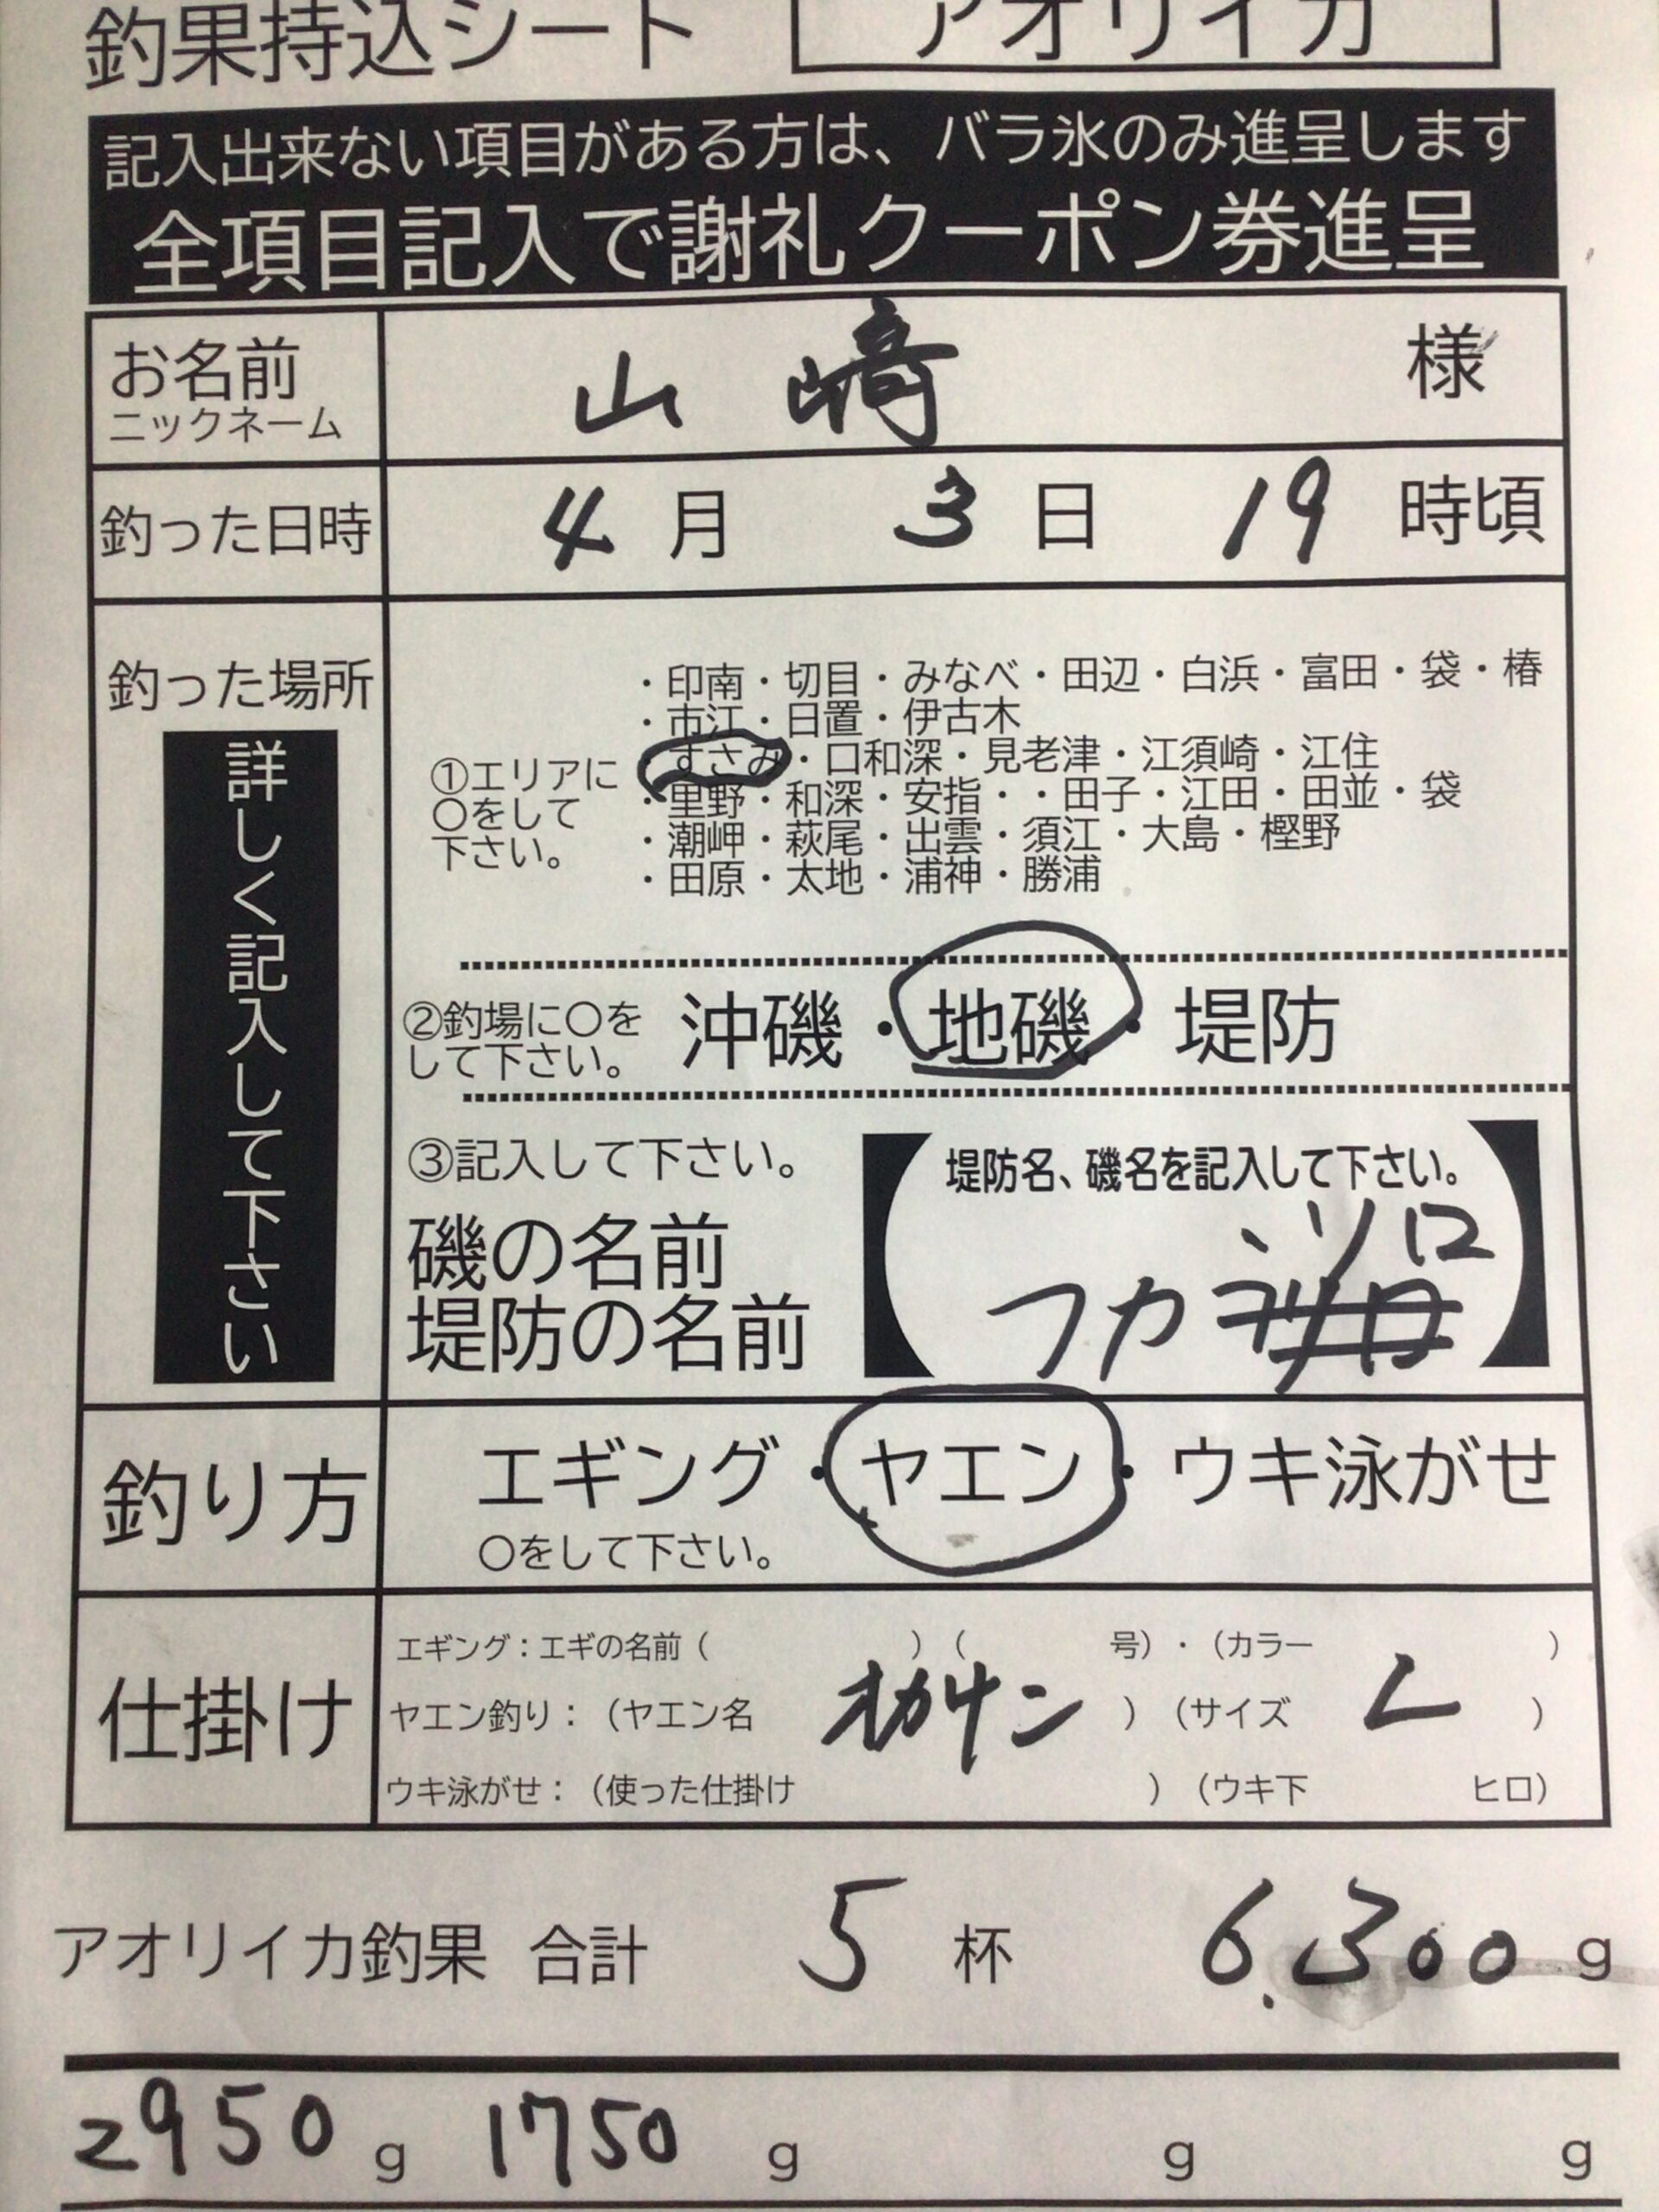 釣果持込シート アオリイカ
記入出来ない項目がある方は、バラ氷のみ進呈します
全項目記入で謝礼クーポン券進呈
お名前 山﨑 様
ニックネーム
釣った日時 4月 3日 19時頃
釣った場所
詳しく記入して下さい
①エリアに
〇をして
下さい。
・印南・切目・みなべ・田辺・白浜・富田・袋・椿
・市江・日置・伊古木
・すさみ・口和深・見老津・江須崎・江住
・里野・和深・安指・・田子・江田・田並・袋
・潮岬・萩尾・出雲・須江・大島・樫野
・田原・太地・浦神・勝浦
②釣場に〇を
して下さい。
沖磯・地磯・堤防
③記入して下さい。
磯の名前
堤防の名前
【堤防名、磯名を記入して下さい。】
、ソロ
フカ
釣り方 エギング・ヤエン・ウキ泳がせ
〇をして下さい。
仕掛け
エギング：エギの名前（ ）（ 号）・（カラー ）
ヤエン釣り：（ヤエン名 ）（サイズ L ）
ウキ泳がせ：（使った仕掛け ）（ウキ下 ヒロ）
アオリイカ釣果 合計 5杯 6.300g
2950g 1750g g g